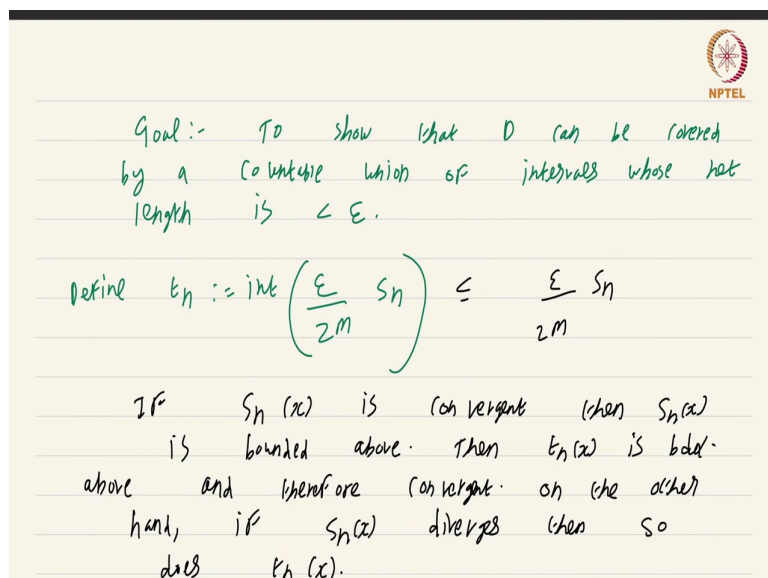 NPTEL
Goal:- To show that D can be covered
by a countable union of intervals whose net
length is < ε.
Define tₙ := int (ε/2M Sₙ) ≤ ε/2M Sₙ
If Sₙ(x) is convergent then Sₙ(x)
is bounded above. Then tₙ(x) is bdd.
above and therefore convergent. On the other
hand, if Sₙ(x) diverges then so
does tₙ(x).